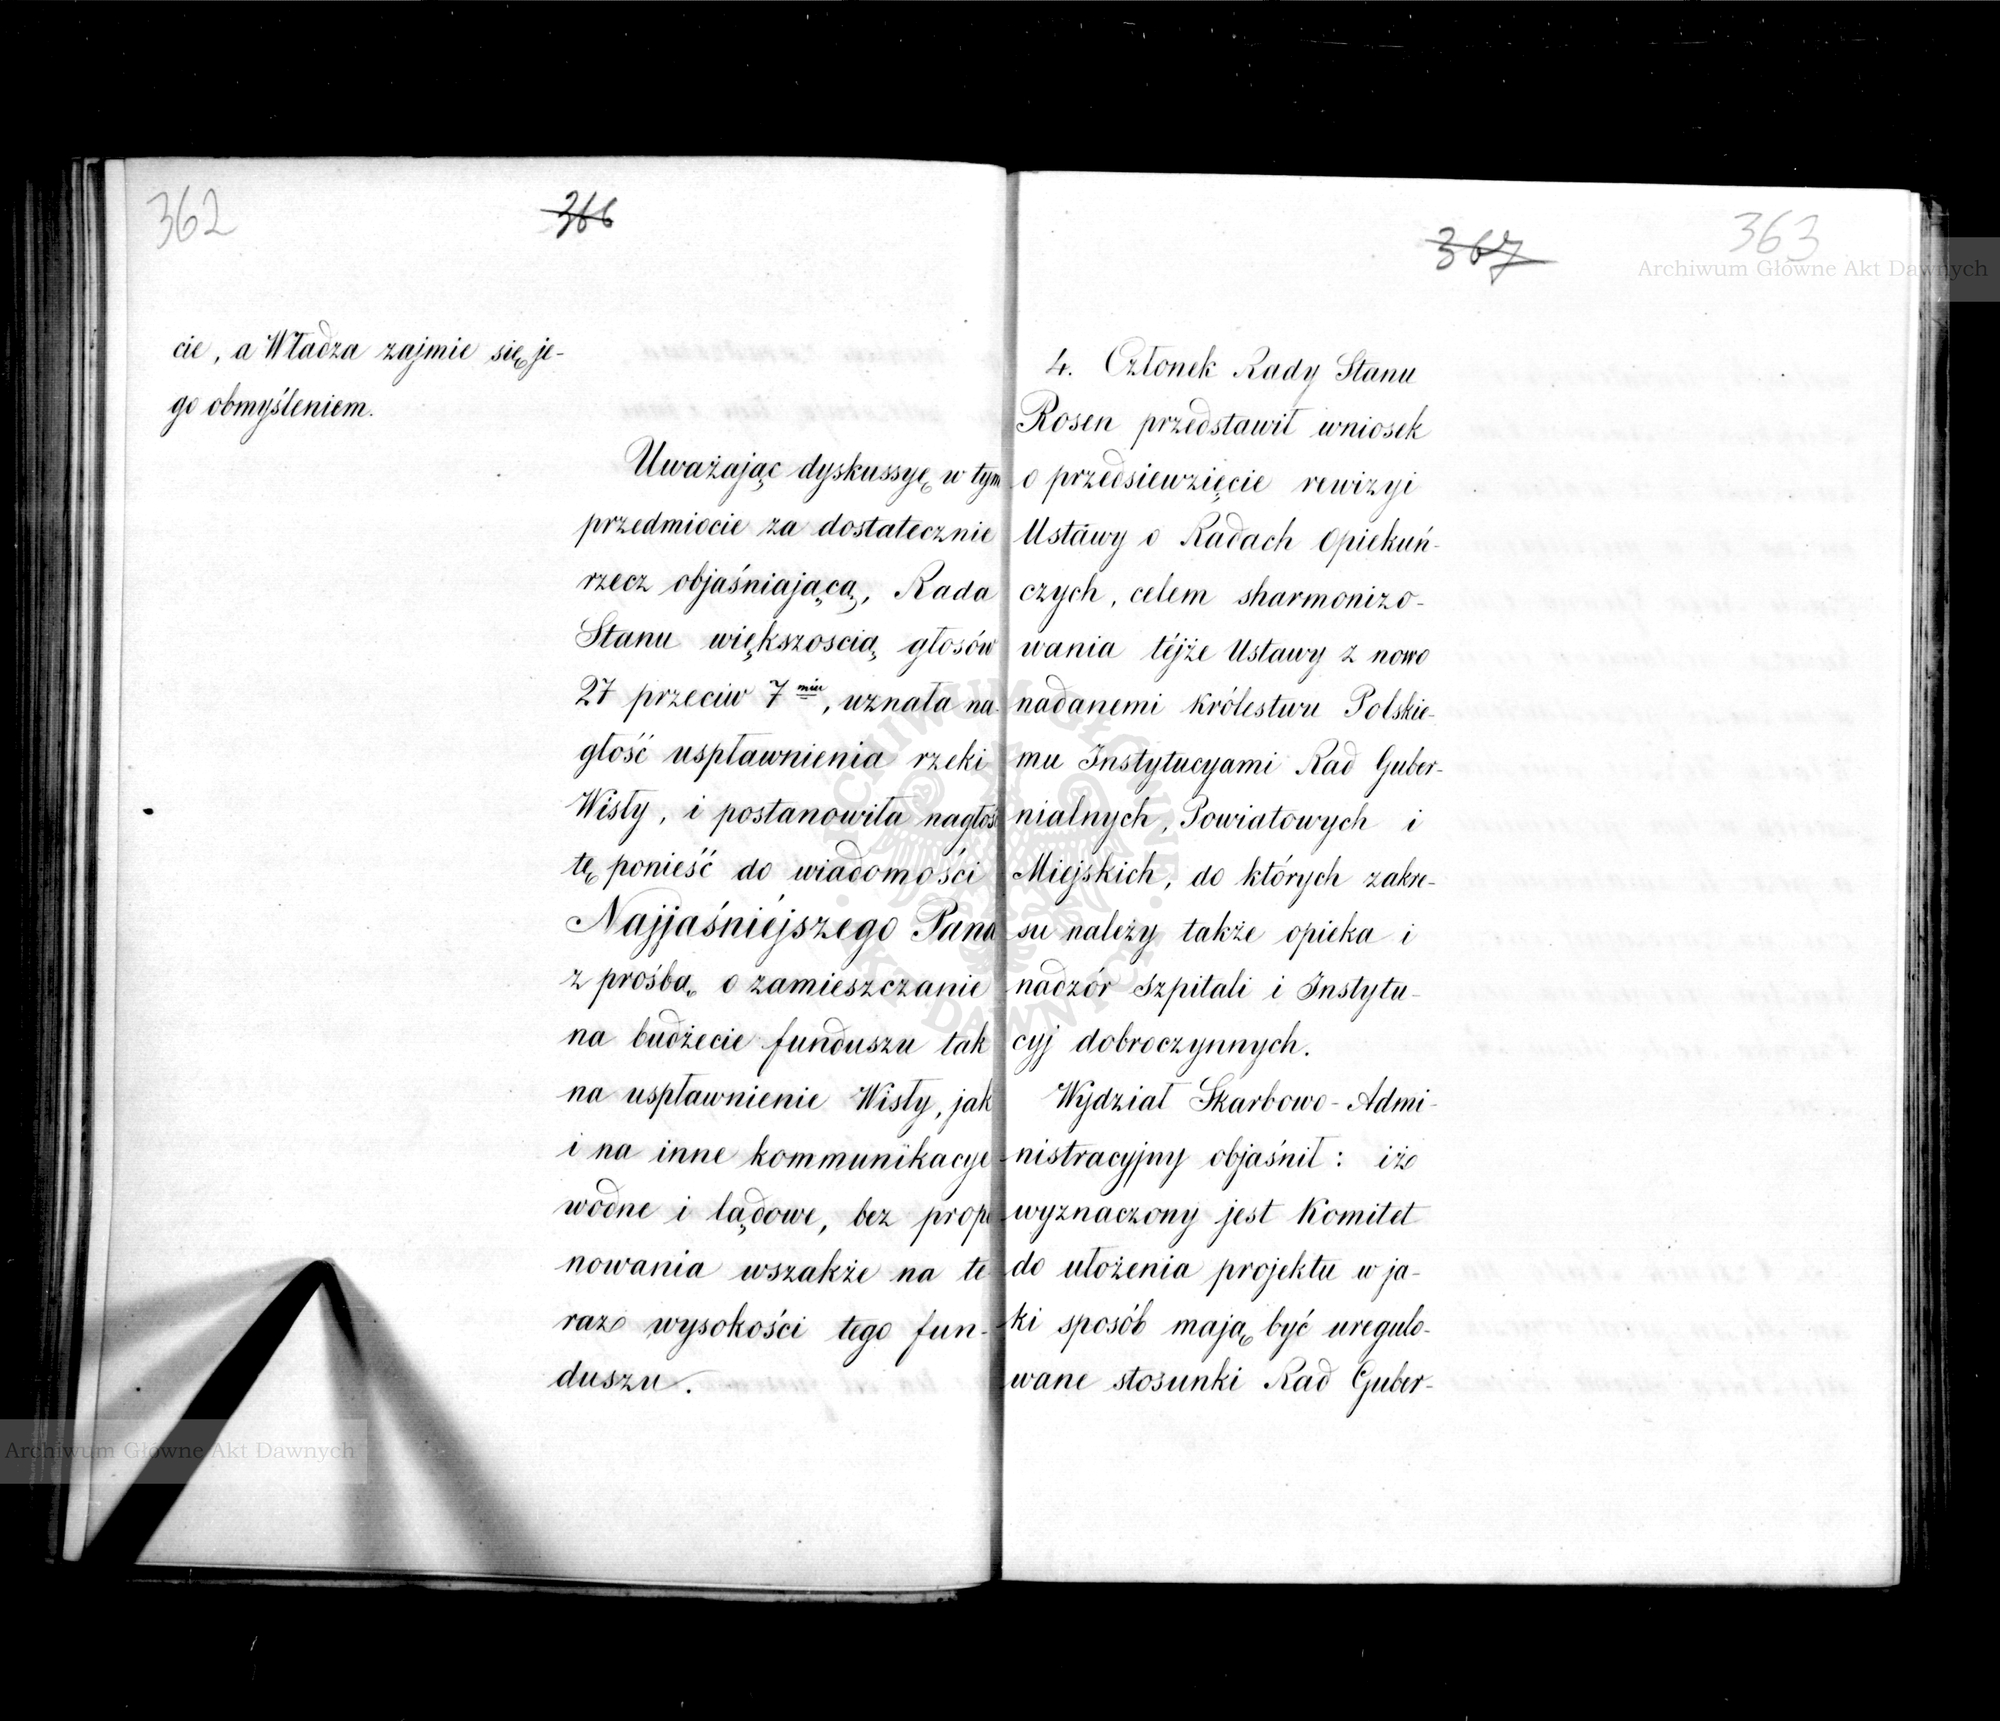 362
366
cie, a Władza zajmie się je-
go obmyśleniem.
Uważając dyskussyę w tym
przedmiocie za dostatecznie
rzecz objaśniającą, Rada
Stanu większoscią głosów
27 przeciw 7miu, uznała na-
głość uspławnienia rzeki
Wisły, i postanowiła nagłość
tę ponieść do wiadomości
Najjaśniéjszego Pana
z prośbą o zamieszczanie
na budżecie funduszu tak
na uspławnienie Wisły, jak
i na inne kommunikacye
wodne i lądowe, bez propo-
nowania wszakże na te-
raz wysokości tego fun-
duszu.
367
363
4. Członek Rady Stanu
Rosen przedstawił wniosek
o przedsiewzięcie rewizyi
Ustawy o Radach Opiekuń-
czych, celem sharmonizo-
wania téjże Ustawy z nowo
nadanemi Królestwu Polskie-
mu Instytucyami Rad Guber-
nialnych, Powiatowych i
Miejskich, do których zakre-
su należy także opieka i
nadzór Szpitali i Instytu-
cyj dobroczynnych.
Wydział Skarbowo-Admi-
nistracyjny objaśnił: iż
wyznaczony jest Komitet
do ułożenia projektu w ja-
ki sposób mają być uregulo-
wane stosunki Rad Guber-
Archiwum Główne Akt Dawnych
Archiwum Główne Akt Dawnych
ARCHIWUM GŁÓWNE AKT DAWNYCH